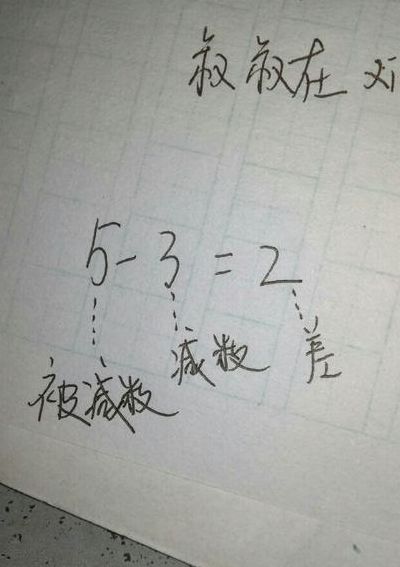 叔叔在
5-3=2
被减数 减数 差